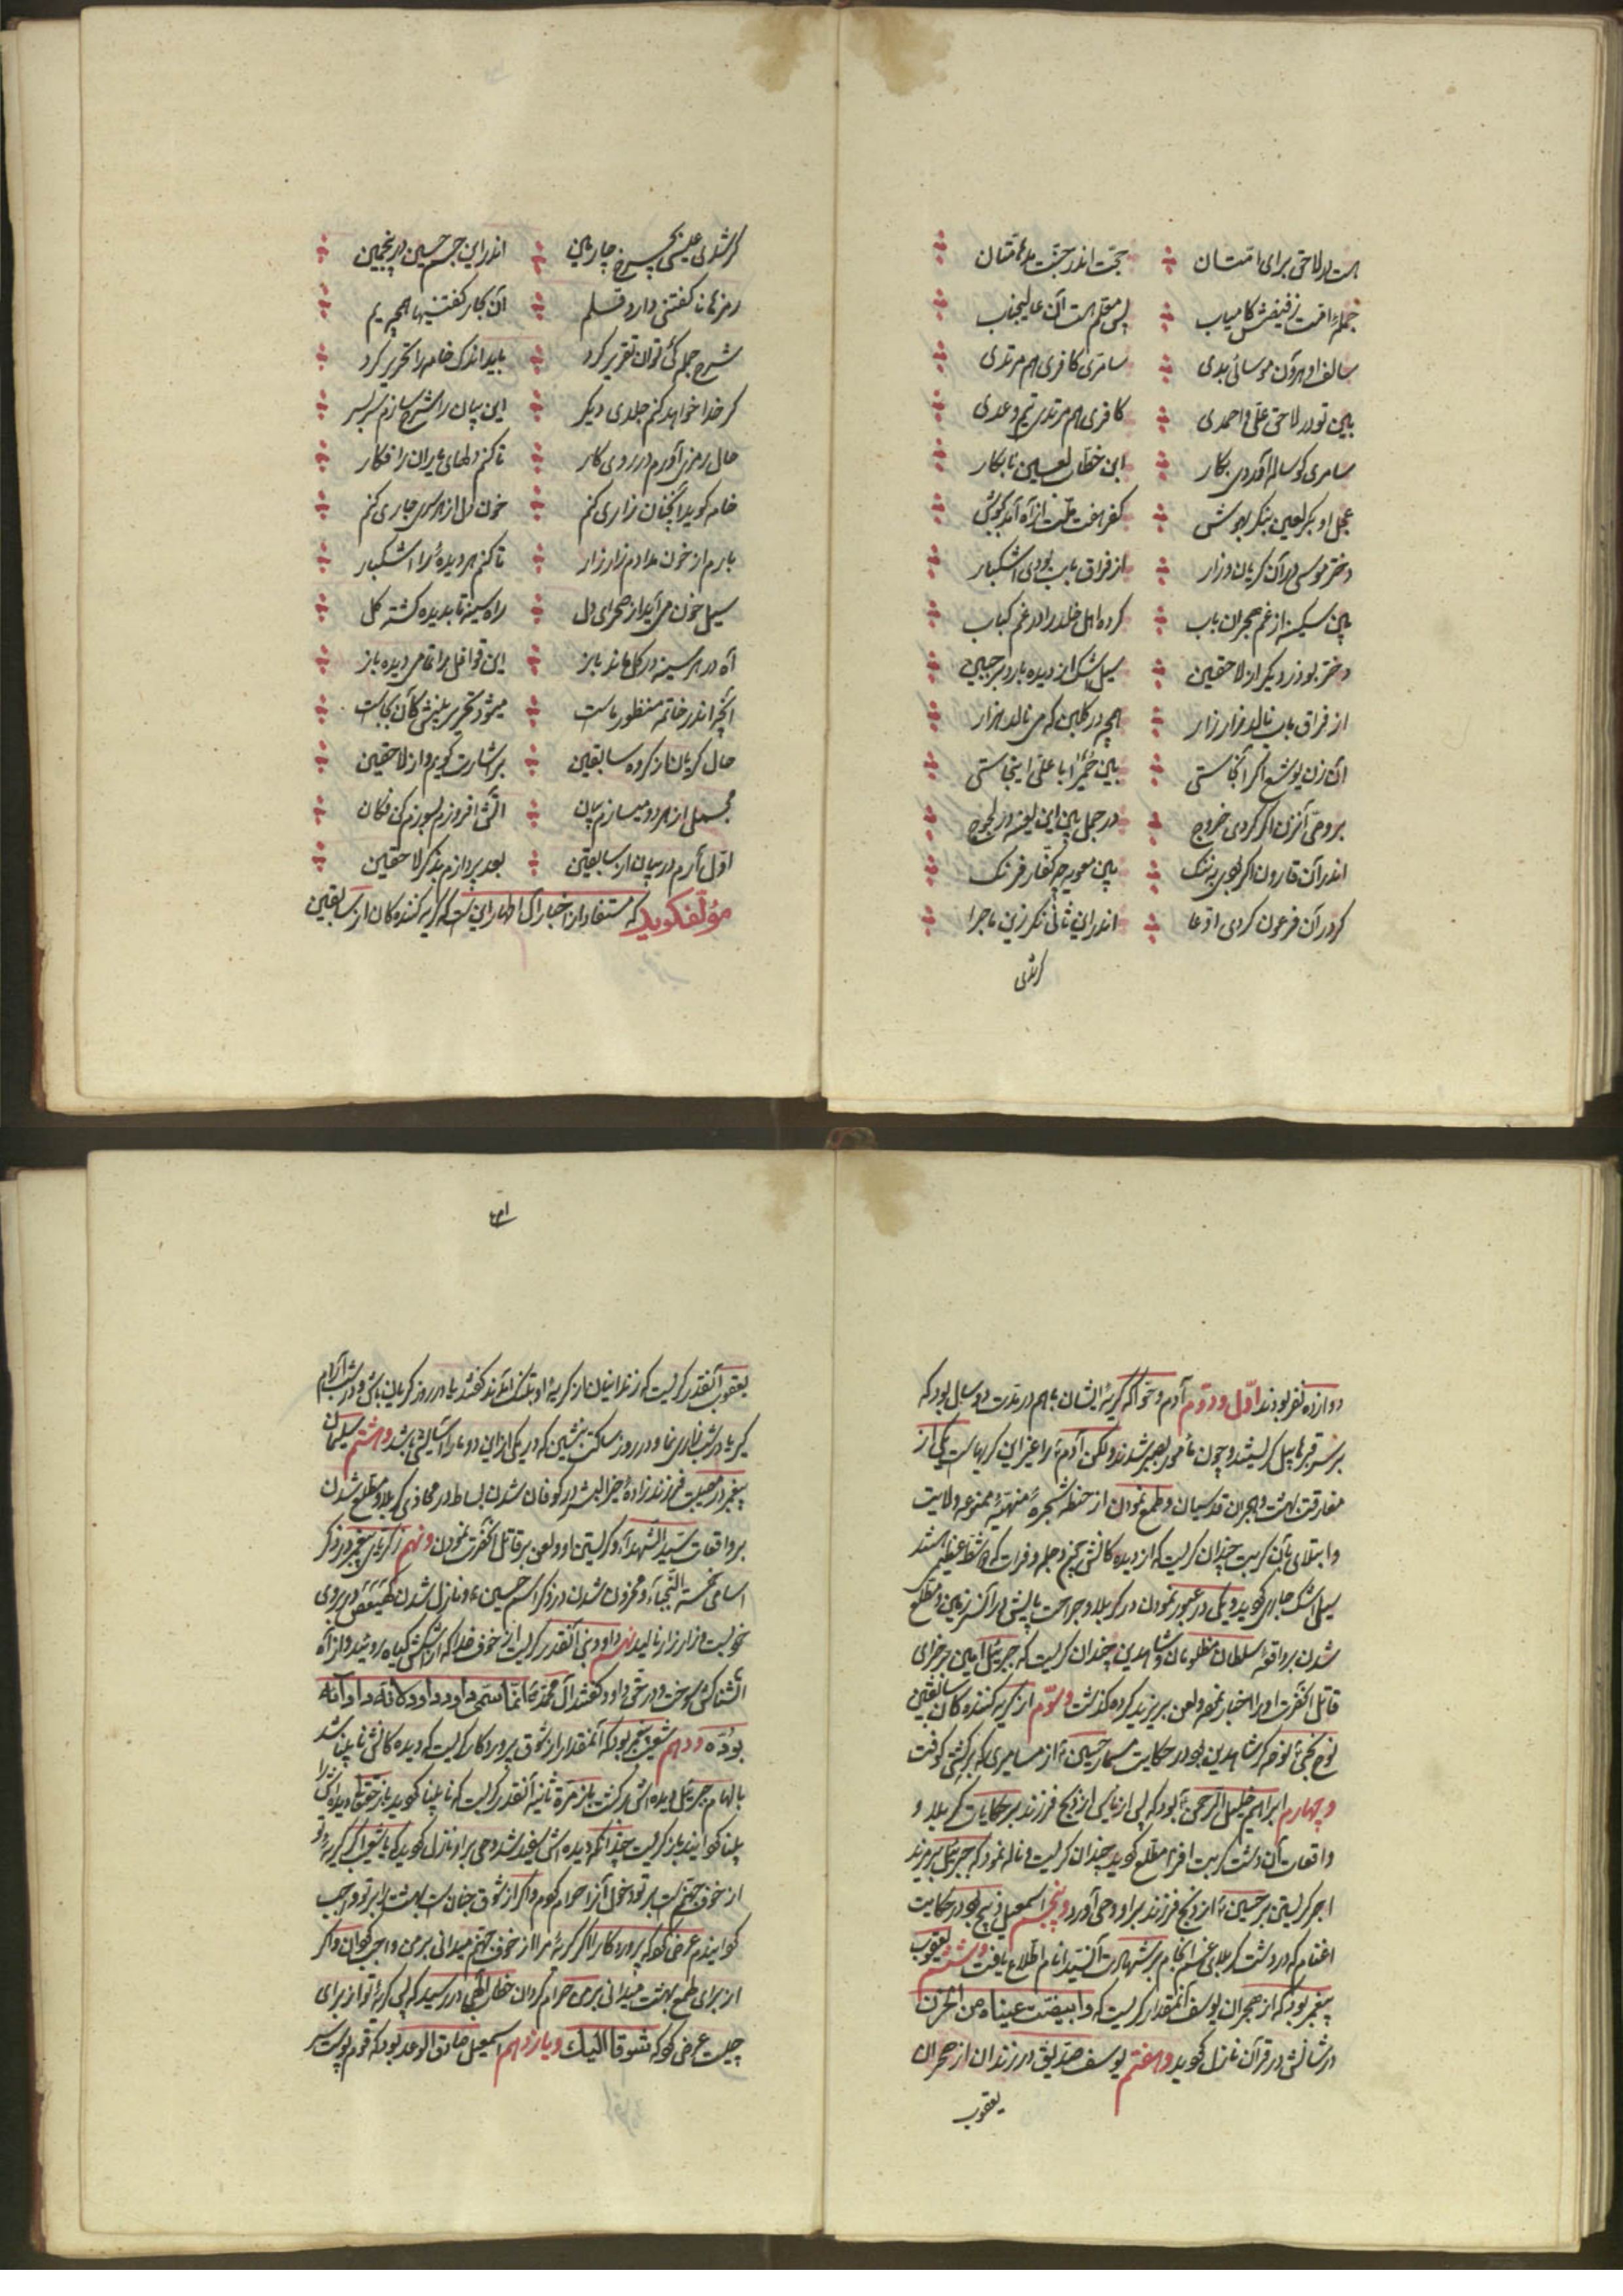 هست در لاحق برای امتنان حجت اندر حجت
جمله امت ز فیضش کامیاب پس معلم هست آن عالیجناب
سالف او هرون موسائی بدی سامری کافری هم مرتدی
بین تو در لاحق علی و احمدی کافری هم مرتدی تیم و عدی
سامری گوساله آوردی بکار ابن خطاب لعین نابکار
عجل او بکر لعین بنگر بهوش کفر هفت آمد بگوش
دختر موسی در آن گریان و زار از فراق باب بودی اشکبار
بین سکینه از غم هجران باب کرده اهل خلد را در غم کباب
دختر بوذر دیگر از لاحقین سیل اشک از دیده بارد بر جبین
از فراق باب نالد زار زار همچه در گلبن که می نالد هزار
آن زن یوشع اگر آنجاستی بین حمیرا با علی اینجاستی
بر وصی آنزن اگر کردی خروج در جمل بین این لعینه در لجوج
اندر آن قارون اگر بودی بننگ بین معویه چه کفار فرنگ
کر در آن فرعون کردی ادعا اندر این ثانی نکر زین ماجرا
گر شدی
گر شدی عیسی بچرخ چارمین اندر این جسم حسین در پنجمین
رمزها ناگفتنی دارد قلم آن بکار گفتنیها همچه یم
شرح جمله کی توان تقریر کرد باید اندک خامه را تحریر کرد
گر خدا خواهد کنم جلدی دیگر این بیان را شرح سازم سر بسر
حال رمزی آورم در روی کار تا کنم دلهای یاران را فکار
خامه گوید آنچنان زاری کنم خون دل از هر سری جاری کنم
بارم از خون مدادم زار زار تا کنم هر دیده را اشکبار
سیل خون می آید از صحرای دل راه سینه تا بدیده گشته گل
آه در هر سینه در گل ماند باز این قوافل را تمامی دیده باز
آنچه اندر خاتمه منظور ماست میشود تحریر بینش کان بجاست
حال گریانان ز گروه سابقین بر شمارت گویم و از لاحقین
مجملی از هر دو میسازم بیان آتش افروزم بسوزم کن فکان
اول آرم در بیان از سابقین بعد پردازم بذکر لاحقین
مؤلف گوید که مستفاد از اخبار آل اطهار این است که گریه کننده کان از سابقین
دوازده نفر بودند اول و دوم آدم و حوا که گریه ایشان باهم در مدت دو سال بود که
بر سر قبر هابیل گریستند و چون مأمور بصبر شدند ولکن آدم را غیر این گریهاست یکی از
مفارقت بهشت و هجران قدسیان و طمع نمودن از حنطه شجره منهیه ممنوعه ولایت
و ابتلای بآن کربت چندان گریست که از دیده کانش چیز دجله و فرات که شط عظیم شد
سیل اشک جاری گوید و یکی در عبور نمودن در کربلا و جراحت پایش در آنسرزمین و مطلع
شدن بر واقعه سلطان مظلومان و شاهدین چندان گریست که جبرئیل امین
قاتل آنحضرت او را اخبار نمود و لعن بر یزید کرده گذشت و سوم از گریه کننده کان سابقین
نوح نجی نوحه گر شاهدین بود در حکایت مسمار حسین از مسامیری که بر کشتی کوفت
و چهارم ابراهیم خلیل الرحمن بود که پس از یأس از ذبح فرزند بر حکایات کربلا و
واقعات آن دشت کربت افزا مطلع گوید چندان گریست و ناله نمود که جبرئیل
اجر گریستن بر حسین از ذبح فرزند بر او وحی آورد و پنجم اسمعیل ذبیح بود در حکایت
اغنام که در دشت کربلای غم انجام بر شهادت آنسید انام اطلاع یافت و ششم یعقوب
پیغمبر بود که از هجران یوسف آنمقدار گریست که وابیضت عیناه من الحزن
در شأنش در قرآن نازل گوید و هفتم یوسف صدیق در زندان از هجران
یعقوب
یعقوب آنقدر گریست که زندانیان از گریه او بتنگ آمدند گفتند یا در روز گریان باش و در شب آرام
گیر یا در شب زاری نما و در روز ساکت بنشین که در یکی از این دو ما را آسایش باشد و هشتم سلیمان
پیغمبر در مصیبت فرزند زاده خیر البشر در کوفان شدن بساط در محاذی کربلا و مطلع شدن
بر واقعات سید الشهدا و گریستن او و لعن بر قاتل آنحضرت نمودن و نهم زکریای پیغمبر در ذکر
اسامی خمسه النجباء و محزون شدن در ذکر اسم حسین و نازل شدن کهیعص در بروی
خو نیست و زار زار نالید نهم داود نبی آنقدر گریست از خوف خدا که از اشکش گیاه روئید و از آه
آتشناکش سوخت و در حق داود گفتند آل محمد انما سمی داود داود لانه داوانه
بوده و دهم شعیب پیغمبر بود که آنمقدار از شوق پروردگار گریست که دیده کانش نابینا شد
بالهام جبرئیل دیده اش برگشت باز مرة ثانیه آنقدر گریست که نابینا گوید باز حقتعالی دیده اش را
بینا گرانید باز گریست چندانکه دیده اش سفید شد وحی بر او نازل گوید که یا شعیب اگر گریه تو
از خوف جهنم است بر تو دخول آنرا حرام گردم و اگر از شوق جنان است بهشت را بر تو واجب
گرانیدم عرض کرد که پروردگارا اگر گریه مرا از خوف جهنم میدانی بر من واجب گردان و اگر
از برای طمع بهشت میدانی بر من حرام گردان خطاب الهی در رسید که پس گریه تو از برای
چیست عرض کرد که شوقا الیک و یازدهم اسمعیل صادق الوعد بود که قوم پوست سر